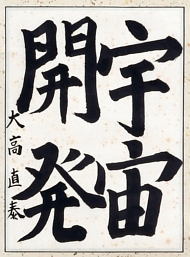 宇宙
開発
大高直泰